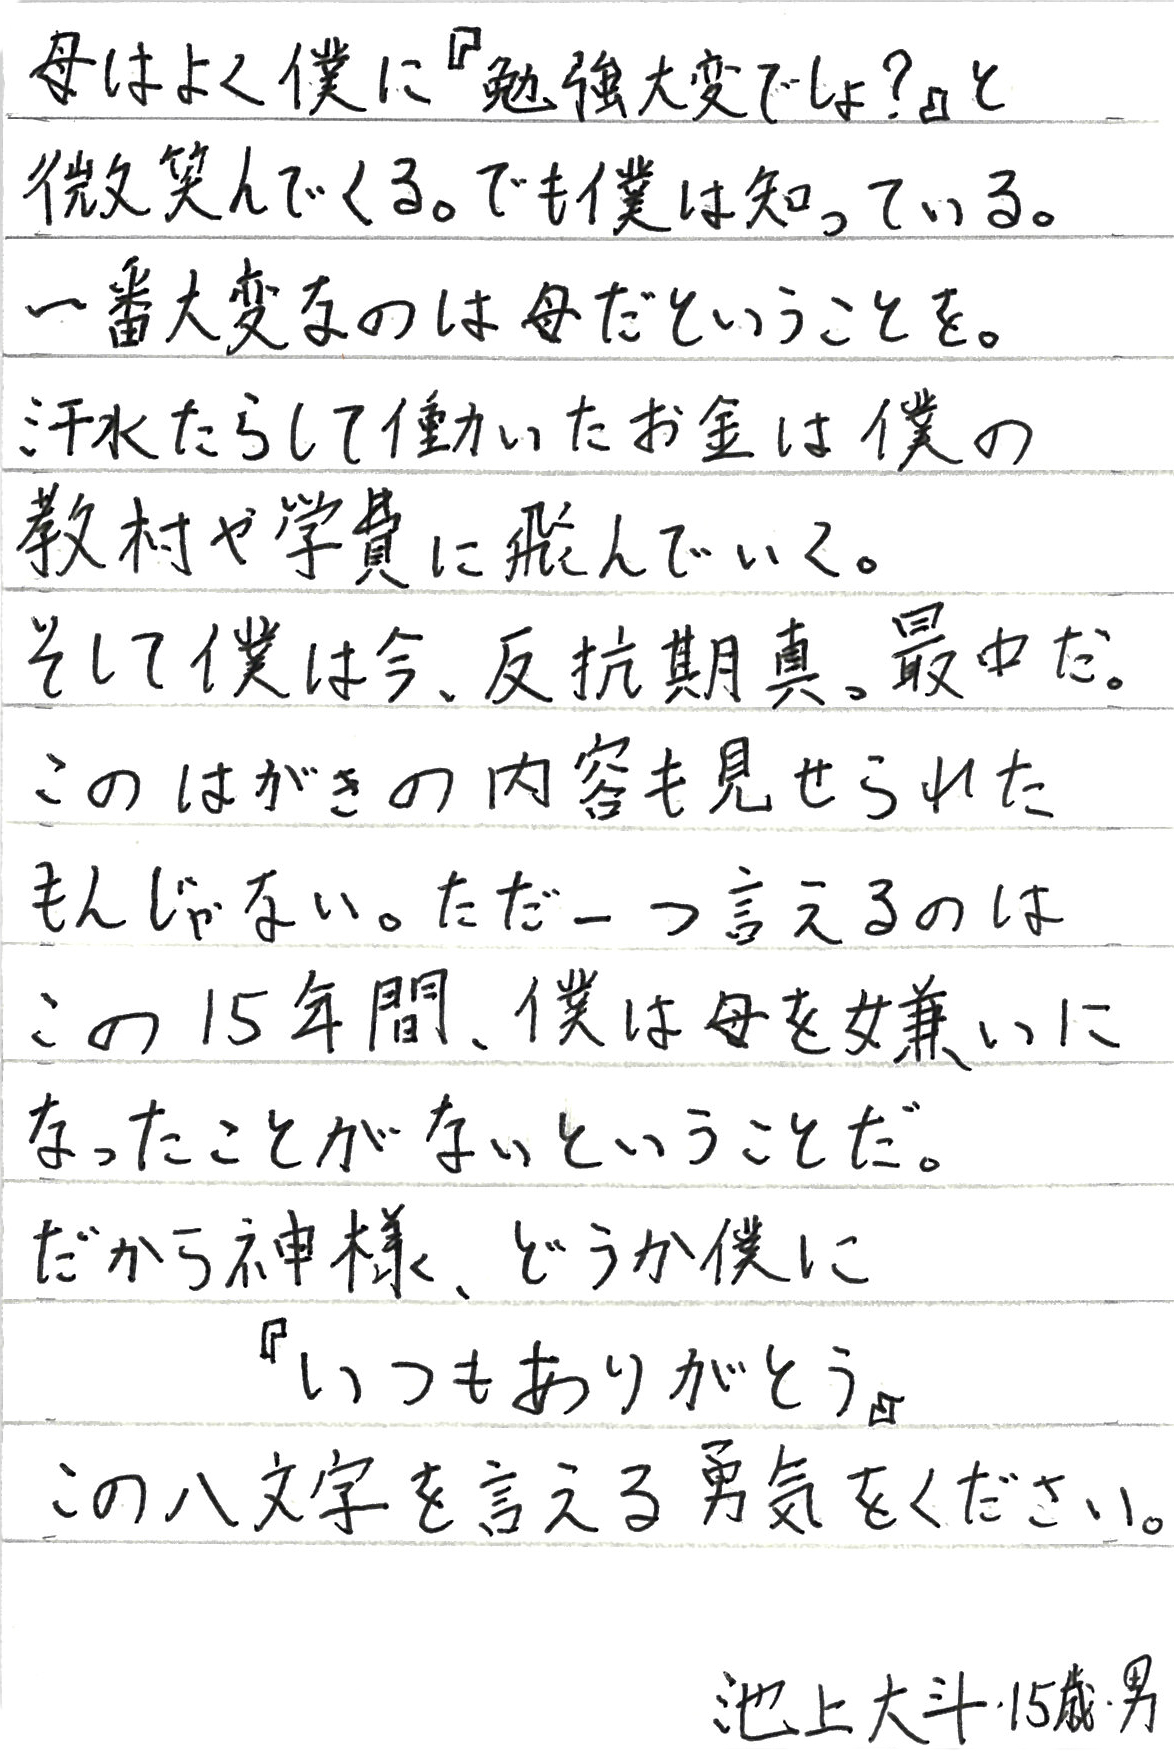 母はよく僕に『勉強大変でしょ?』と
微笑んでくる。でも僕は知っている。
一番大変なのは母だということを。
汗水たらして働いたお金は僕の
教材や学費に飛んでいく。
そして僕は今、反抗期真っ最中だ。
このはがきの内容も見せられた
もんじゃない。ただ一つ言えるのは
この15年間、僕は母を嫌いに
なったことがないということだ。
だから神様、どうか僕に
『いつもありがとう』
この八文字を言える勇気をください。
池上大斗・15歳・男